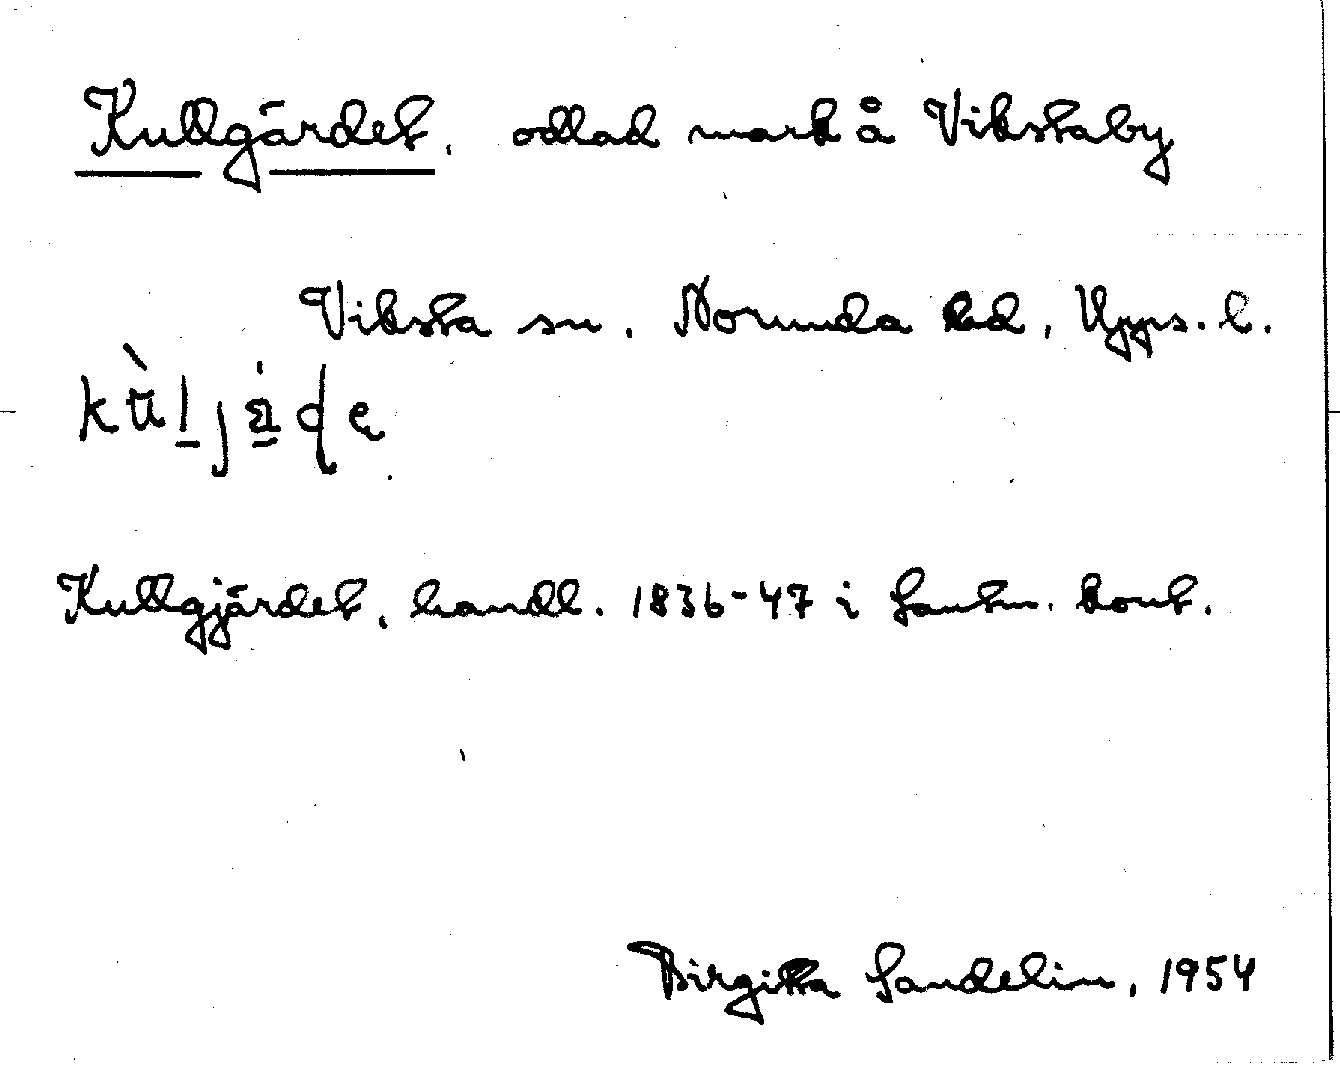 Kullgärdet, odlad mark å Vikstaby
Viksta sn. Norunda hd, Upps. l.
kùl jä̀ḍę
Kullgjärdet, handl. 1836-47 i Lantm. kont.
Birgitta Sandelin, 1954